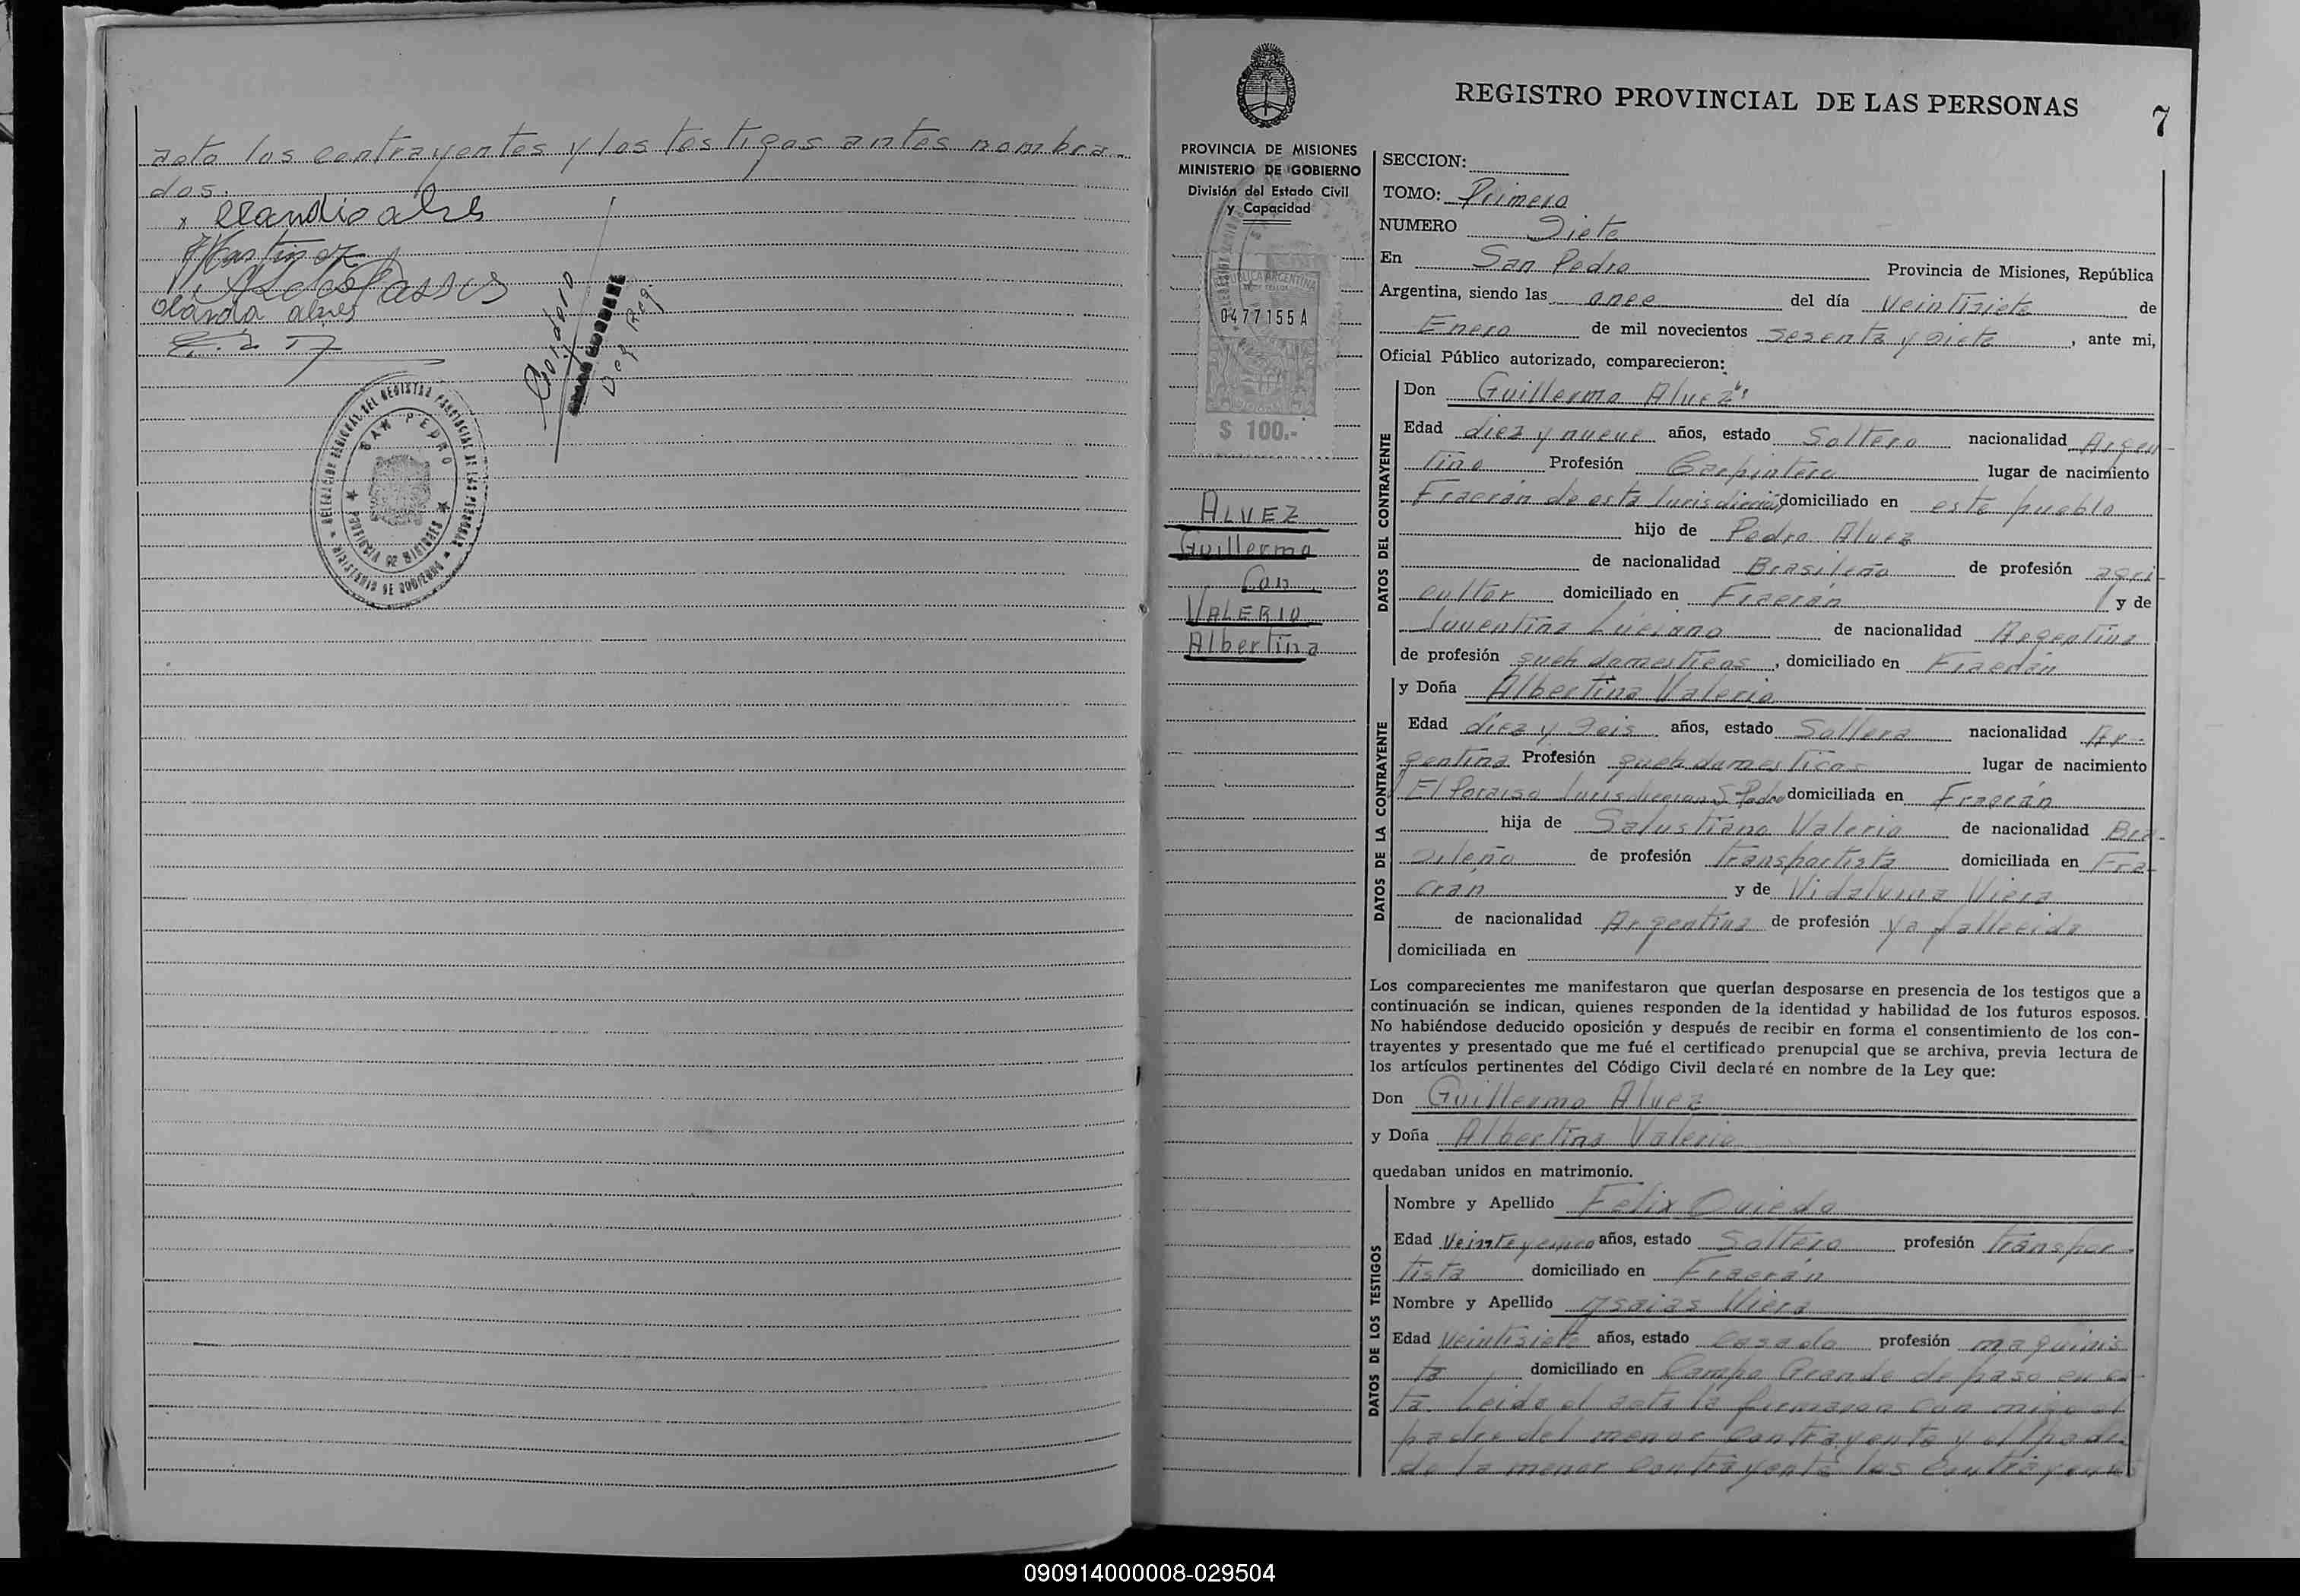 acta los contrayentes y los testigos antes nombra-
dos.
x Claudio alves
Martinez
olanda alves
DELEGACION REGIONAL DEL REGISTRO PROVINCIAL DE LAS PERSONAS
SAN PEDRO
PROVINCIA DE MISIONES
MINISTERIO DE GOBIERNO
REGISTRO PROVINCIAL DE LAS PERSONAS
7
PROVINCIA DE MISIONES
MINISTERIO DE GOBIERNO
División del Estado Civil
y Capacidad
REPUBLICA ARGENTINA
0477155 A
$ 100.-
ALVEZ
Guillermo
Con
VALERIO
Albertina
SECCION:
TOMO: Primero
NUMERO Siete
En San Pedro Provincia de Misiones, República
Argentina, siendo las once del día veintisiete de
Enero de mil novecientos sesenta y siete, ante mi,
Oficial Público autorizado, comparecieron:
DATOS DEL CONTRAYENTE
Don Guillermo Alvez
Edad diez y nueve años, estado Soltero nacionalidad Argen-
tino Profesión Carpintero lugar de nacimiento
Fracrán de esta Jurisdicción domiciliado en este pueblo
hijo de Pedro Alvez
de nacionalidad Brasileño de profesión agri-
cultor domiciliado en Fracrán y de
Juventina Luciano de nacionalidad Argentina
de profesión queh domesticos, domiciliado en Fracrán
DATOS DE LA CONTRAYENTE
y Doña Albertina Valerio
Edad diez y seis años, estado Soltera nacionalidad Ar-
gentina Profesión queh domesticos lugar de nacimiento
El Paraiso Jurisdiccion S. Pedro domiciliada en Fracrán
hija de Salustiano Valerio de nacionalidad Bra-
sileño de profesión transportista domiciliada en Fra-
crán y de Vidalvina Viera
de nacionalidad Argentina de profesión ya fallecida
domiciliada en
Los comparecientes me manifestaron que querían desposarse en presencia de los testigos que a
continuación se indican, quienes responden de la identidad y habilidad de los futuros esposos.
No habiéndose deducido oposición y después de recibir en forma el consentimiento de los con-
trayentes y presentado que me fué el certificado prenupcial que se archiva, previa lectura de
los artículos pertinentes del Código Civil declaré en nombre de la Ley que:
Don Guillermo Alvez
y Doña Albertina Valerio
quedaban unidos en matrimonio.
DATOS DE LOS TESTIGOS
Nombre y Apellido Felix Oviedo
Edad veinte y cinco años, estado Soltero profesión transpor-
tista domiciliado en Fracrán
Nombre y Apellido Ysaias Viera
Edad veintisiete años, estado Casado profesión maquinis
ta domiciliado en Campo Grande de paso en es-
ta. Leida el acta la firmaron con migo el
padre del menor Contrayente y el padre
de la menor Contrayente los Contrayentes
090914000008-029504